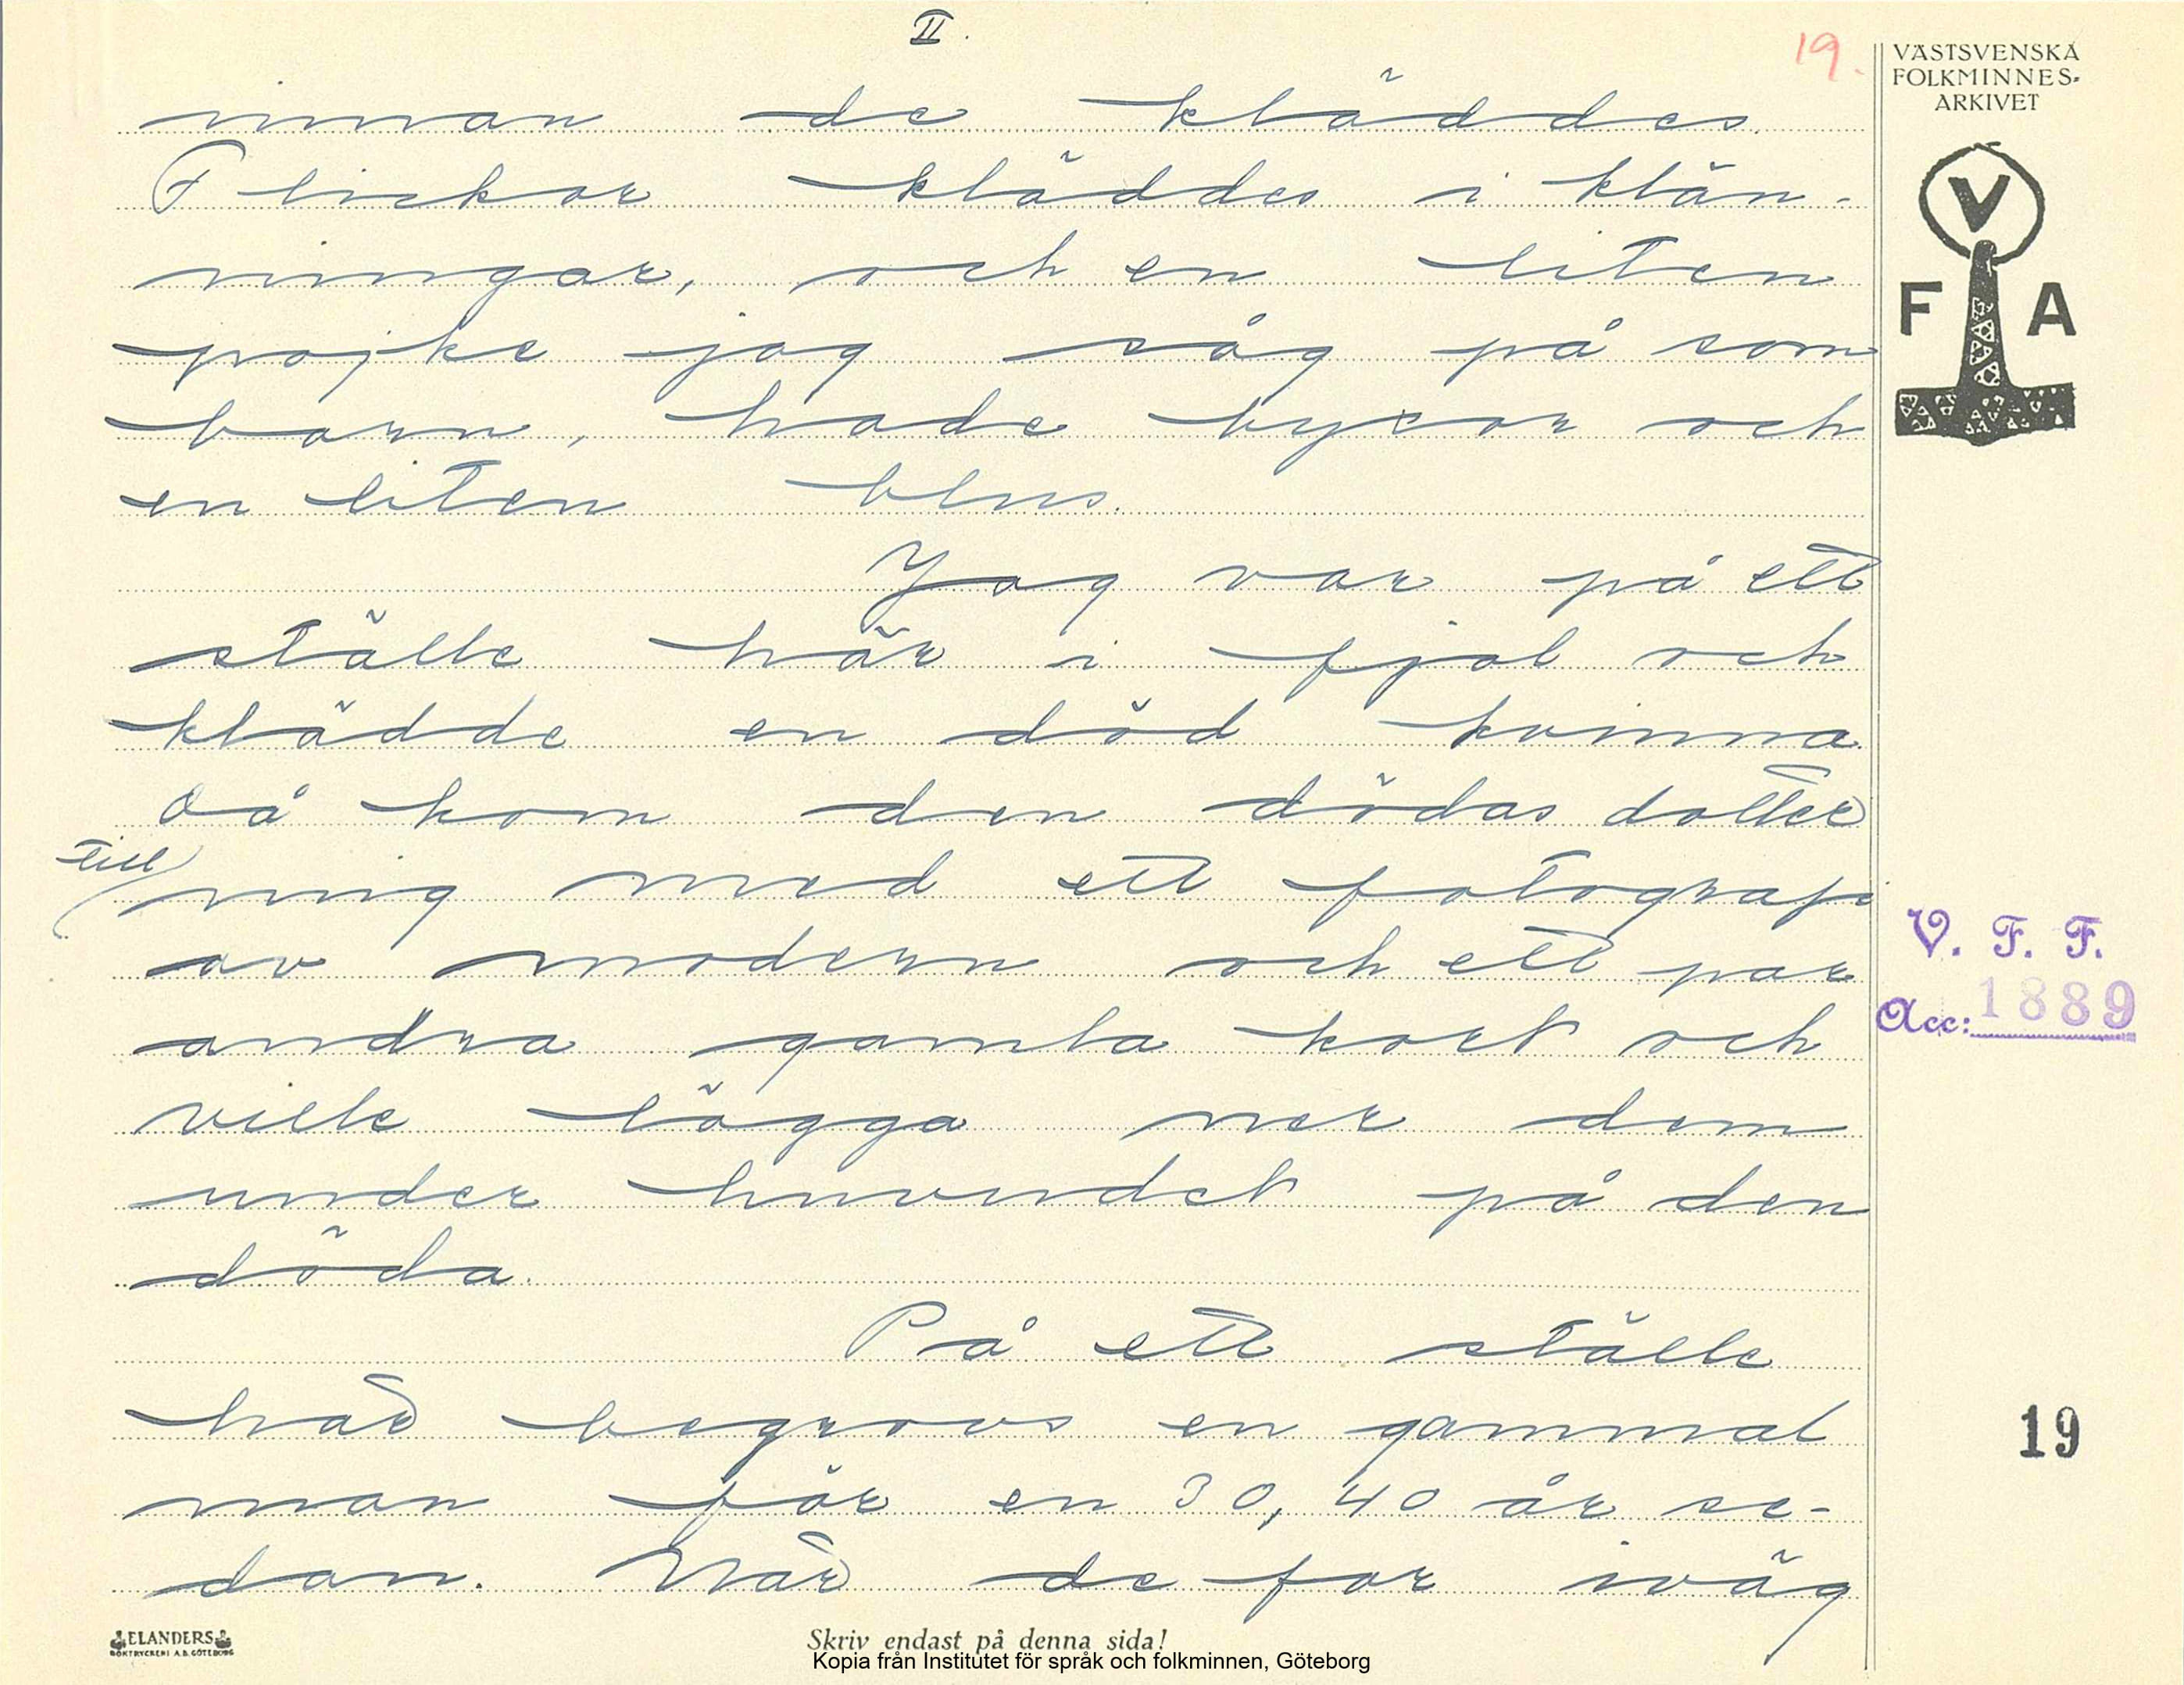 II.
19.
VÄSTSVENSKA
FOLKMINNES-
ARKIVET
V
F A
innan de kläddes.
Flickor kläddes i klän-
ningar, och en liten
pojke jag såg på som
barn, hade byxor och
en liten blus.
Jag var på ett
ställe här i fjol och
klädde en död kvinna.
Då kom den dödas dotter
till
mig med ett fotografi
av modern och ett par
andra gamla kort och
ville lägga ner dem
under huvudet på den
döda.
På ett ställe
här begrovs en gammal
man för en 30, 40 år se-
dan. När de for iväg
V. F. F.
Acc: 1889
19
ELANDERS
BOKTRYCKERI A.B. GÖTEBORG
Skriv endast på denna sida!
Kopia från Institutet för språk och folkminnen, Göteborg